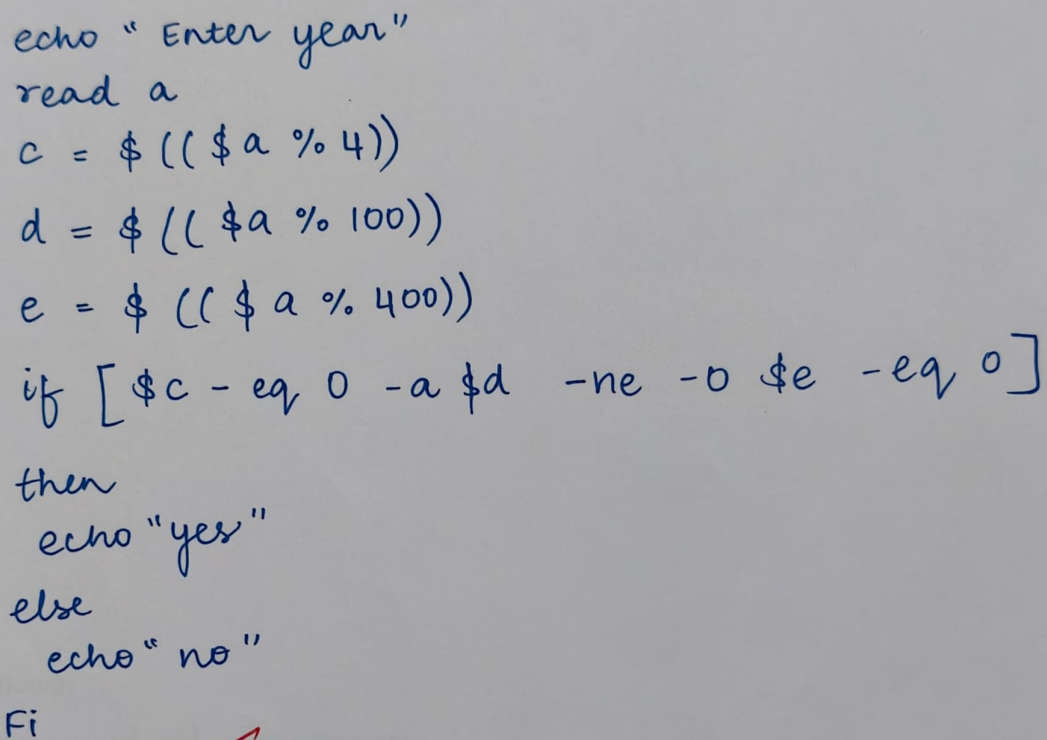 echo " Enter year"
read a
c = $(($a % 4))
d = $(($a % 100))
e = $(($a % 400))
if [$c - eq 0 -a $d -ne -o $e -eq 0]
then
echo "yes"
else
echo " no"
Fi